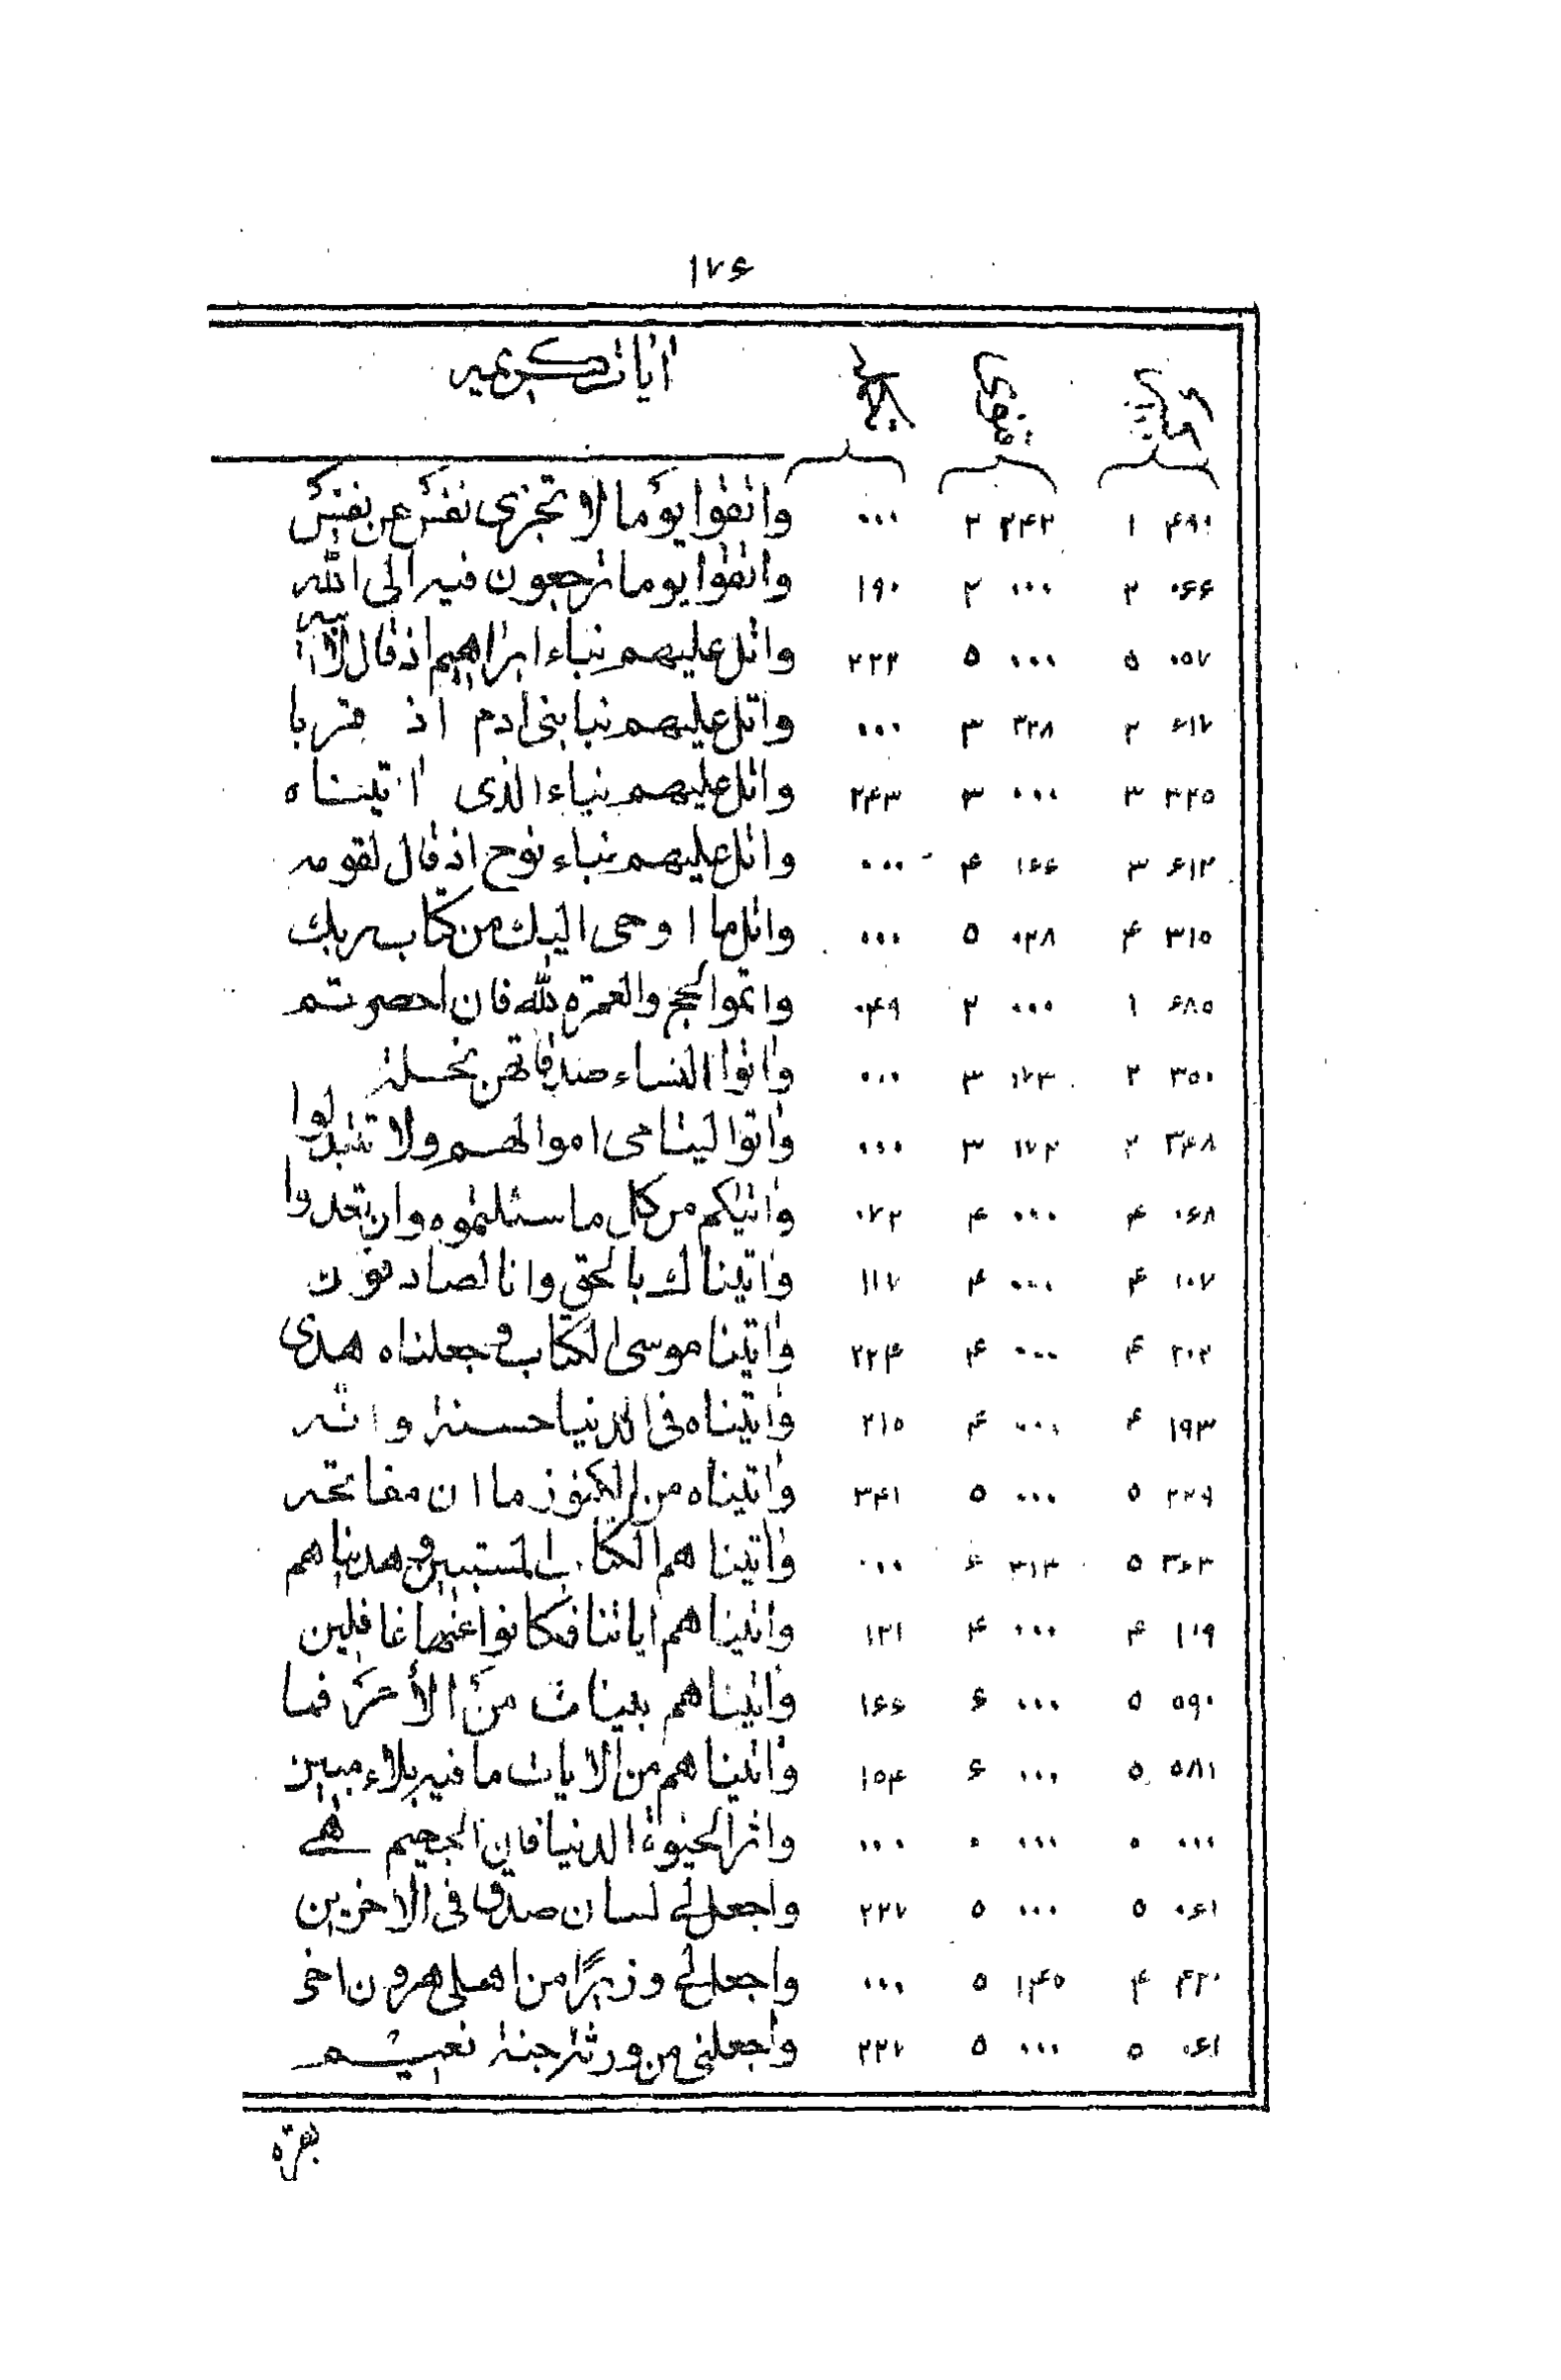 ۱۷۶
آیات کریمه
۴۹۰ ۱ ۲۴۲ ۲ ۰۰۰ واتقوا یوما لا تجزی نفس عن نفس
۰۶۶ ۲ ۰۰۰ ۲ ۱۹۰ واتقوا یوما ترجعون فیه الی الله
۰۵۷ ۵ ۰۰۰ ۵ ۲۲۲ واتل علیهم نباء ابراهیم اذ قال لابیه
۶۱۷ ۲ ۲۲۸ ۳ ۰۰۰ واتل علیهم نبا ابنی ادم اذ قربا
۳۲۵ ۳ ۰۰۰ ۳ ۲۴۳ واتل علیهم نباء الذی اتیناه
۶۱۲ ۳ ۱۶۶ ۴ ۰۰۰ واتل علیهم نباء نوح اذ قال لقومه
۳۱۵ ۴ ۰۲۸ ۵ ۰۰۰ واتل ما اوحی الیک من کتاب ربک
۶۸۵ ۱ ۰۰۰ ۲ ۰۴۹ واتموا الحج والعمرة لله فان احصرتم
۳۵۰ ۲ ۱۷۳ ۳ ۰۰۰ واتوا النساء صدقاتهن نحلة
۳۴۸ ۲ ۱۷۲ ۳ ۰۰۰ واتوا لیتامی اموالهم ولا تتبدلوا
۰۶۸ ۴ ۰۰۰ ۴ ۰۷۲ واتیکم من کل ما سئلتموه وان تعدوا
۱۰۷ ۴ ۰۰۰ ۴ ۱۱۷ واتیناک بالحق وانا لصادقون
۲۰۲ ۴ ۰۰۰ ۴ ۲۲۴ واتینا موسی الکتاب وجعلناه هدی
۱۹۳ ۴ ۰۰۰ ۴ ۲۱۵ واتیناه فی الدنیا حسنة وانه
۲۲۹ ۵ ۰۰۰ ۵ ۳۴۱ واتیناه من الکنوز ما ان مفاتحه
۳۶۳ ۵ ۳۱۳ ۶ ۰۰۰ واتیناهما الکتاب المستبین وهدیناهم
۱۱۹ ۴ ۰۰۰ ۴ ۱۳۱ واتیناهم ایاتنا فکانوا عنها غافلین
۵۹۰ ۵ ۰۰۰ ۶ ۱۶۶ واتیناهم بینات من الأمر فما
۵۸۱ ۵ ۰۰۰ ۶ ۱۵۴ واتیناهم من الایات ما فیه بلاء مبین
۰۰۰ ۰ ۰۰۰ ۰ ۰۰۰ واثر الحیوة الدنیا فان الجحیم هی
۰۶۱ ۵ ۰۰۰ ۵ ۲۲۷ واجعل لی لسان صدق فی الاخرین
۴۲۰ ۴ ۱۴۵ ۵ ۰۰۰ واجعل لی وزیرًا من اهلی هرون اخی
۰۶۱ ۵ ۰۰۰ ۵ ۲۲۷ واجعلنی من ورثة جنة نعیم
بقره